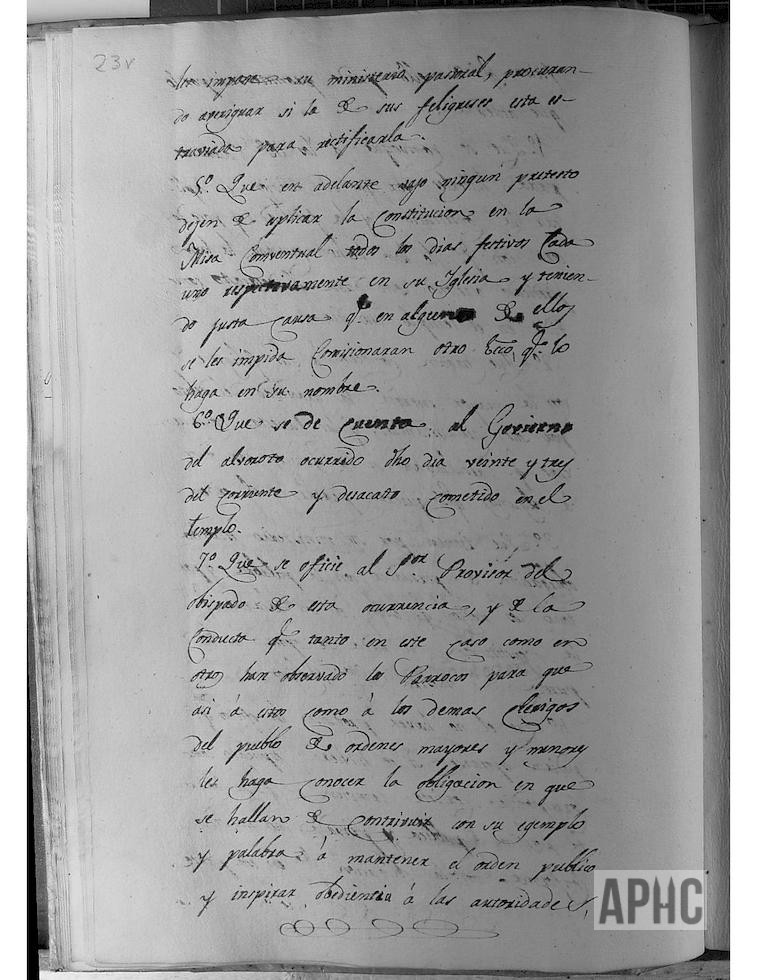 23v
les impone su ministerio pastoral, procuran-
do averiguar si la de sus feligreses esta es-
traviada para rectificarla.
5.º Que en adelante vajo ningun pretesto
dejen de aplicar la Constitucion en la
Misa Comventual todos los dias festivos Cada
uno respectivamente en su Yglesia y tenien-
do justa causa q.e en alguno de ellos
se les impida Comisionaran otro Ecco, q.e lo
haga en su nombre.
6.º Que se de cuenta al Govierno
del alvoroto ocurrido dho dia veinte y tres
del corriente y desacato cometido en el
templo.
7.º Que se oficie al S.or Provisor del
obispado de esta ocurrencia, y de la
Conducta q.e tanto en este caso como en
otros han observado los Parrocos para que
asi á estos como á los demas Clerigos
del pueblo de ordenes mayores y menores
les haga conocer la obligacion en que
se hallan de contrivuir con su egemplo
y palabra á mantener el orden publico
y inspirar obediencia á las autoridades,
APHC